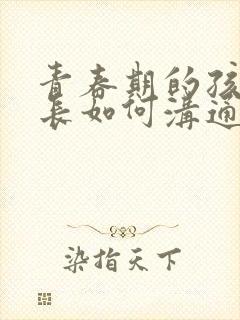 青春期的孩
长如何溝通
染指天下